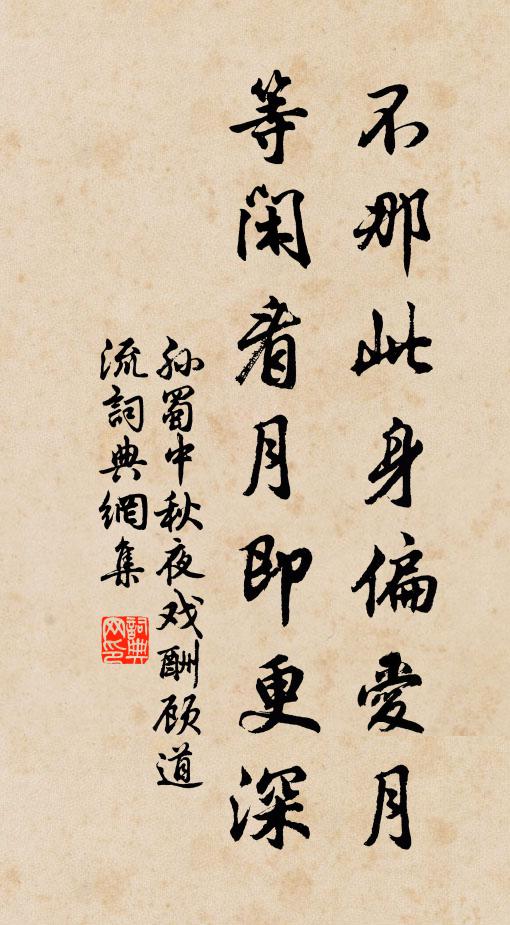 不那此身偏愛月
等閑看月即更深
孙蜀中秋夜戏酬顾道
流詞典網集
詞典
网印